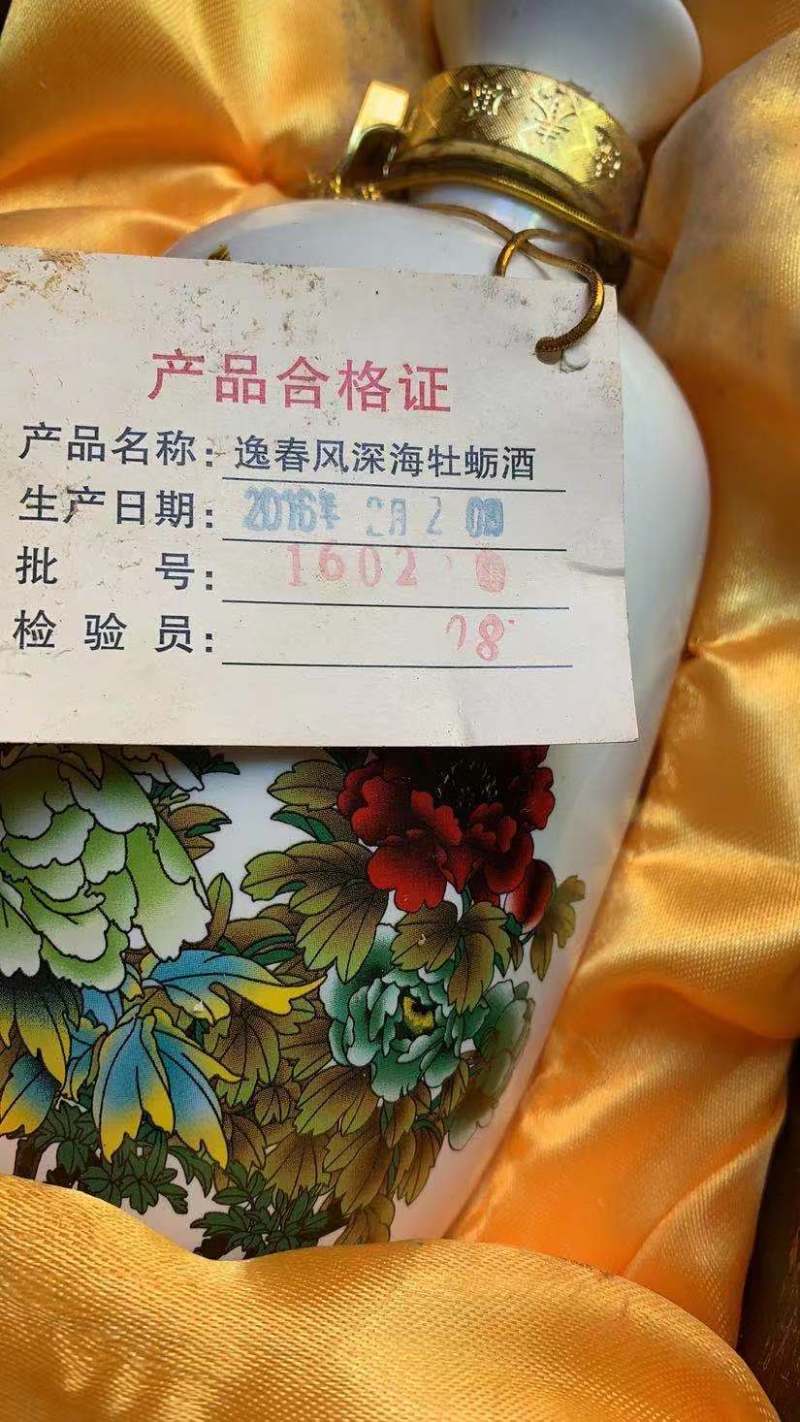 产品合格证
产品名称：逸春风深海牡蛎酒
生产日期：2016年 2月 2
批 号：1602
检 验 员：08